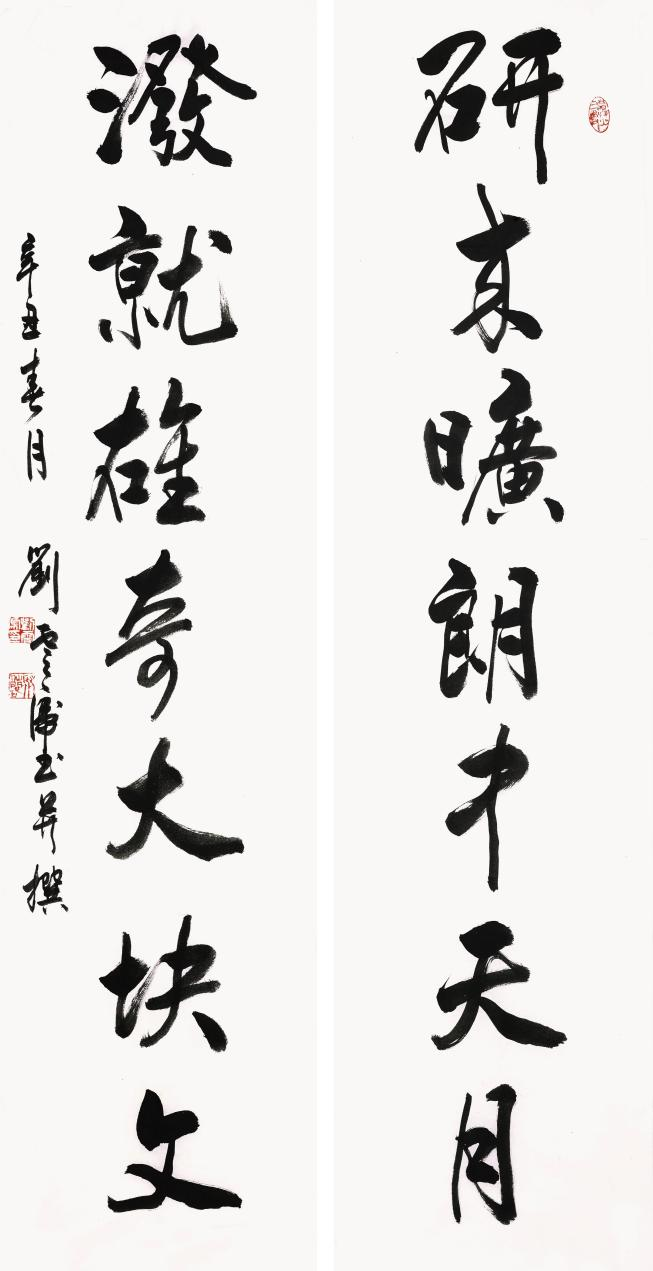 研来曠朗中天月
潑就雄奇大块文
辛丑春月 劉 书并撰